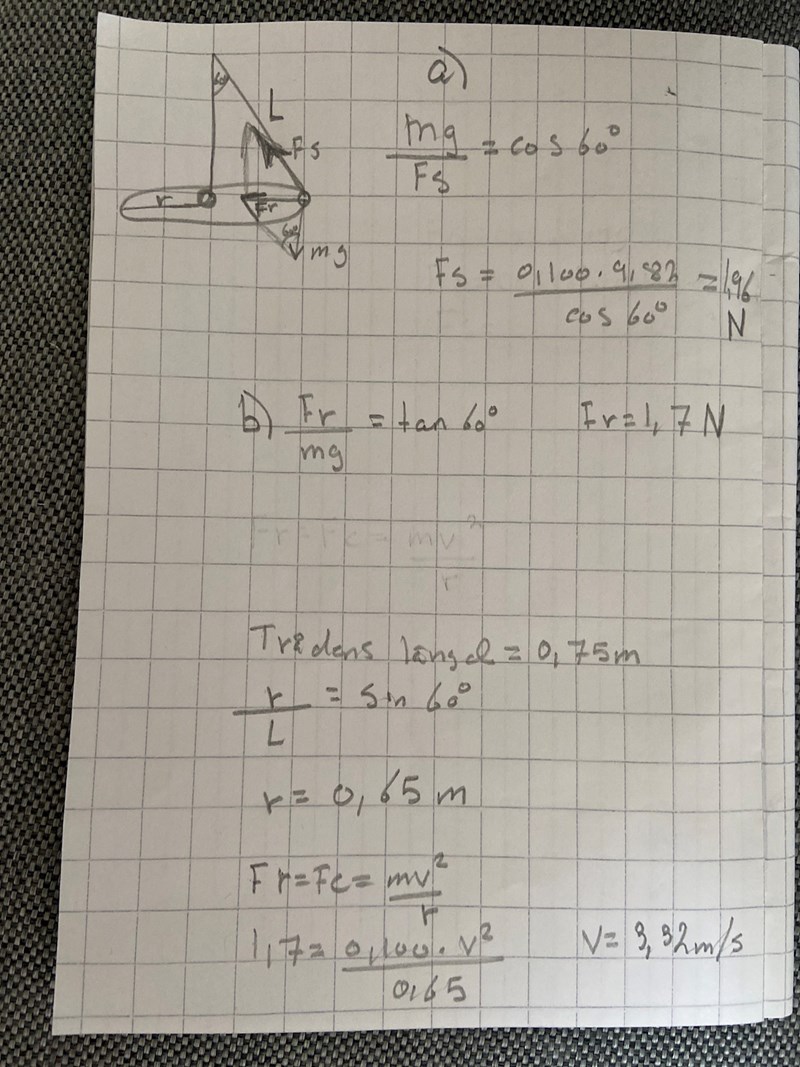 a)
60
L
mg/Fs = cos 60°
Fs
r
Fr
60
mg
Fs = 0,100 · 9,82 / cos 60° = 1,96 N
b) Fr/mg = tan 60° Fr = 1,7 N
Fr = Fc = mv²/r
Trådens längd = 0,75 m
r/L = sin 60°
r = 0,65 m
Fr = Fc = mv²/r
1,7 = 0,100 · v² / 0,65 v = 3,32 m/s